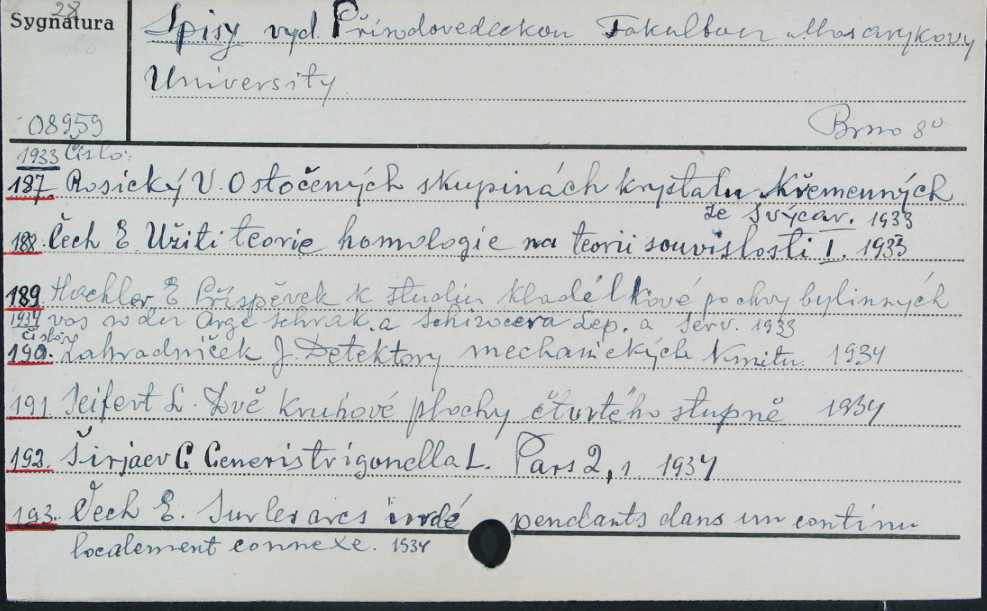 28
Sygnatura
Spisy vyd. Přírodovedeckou Fakultou Masarykovy
University
08959
Brno 8°
1933 Číslo:
187. Rosický V. O stočených skupinách krystalu Křemenných
ze Švýcar. 1933
188. Čech E. Užití teorie homologie na teorii souvislosti I. 1933
189 E Příspěvek k studiu kladélkové pochvy bylinných
1934 vos rodu Arge schrak. a Schizocera Lep. a Serv. 1933
Číslo
190. Zahradníček J. Detektory mechanických Kmitu. 1934
191. Seifert L. Dvě kruhové plochy čtvrtého stupně 1934
192. Širjaev G Generis trigonella L. Pars 2, 1. 1934
193. Čech E. Sur les arcs indé pendants dans un continu
localement connexe. 1934